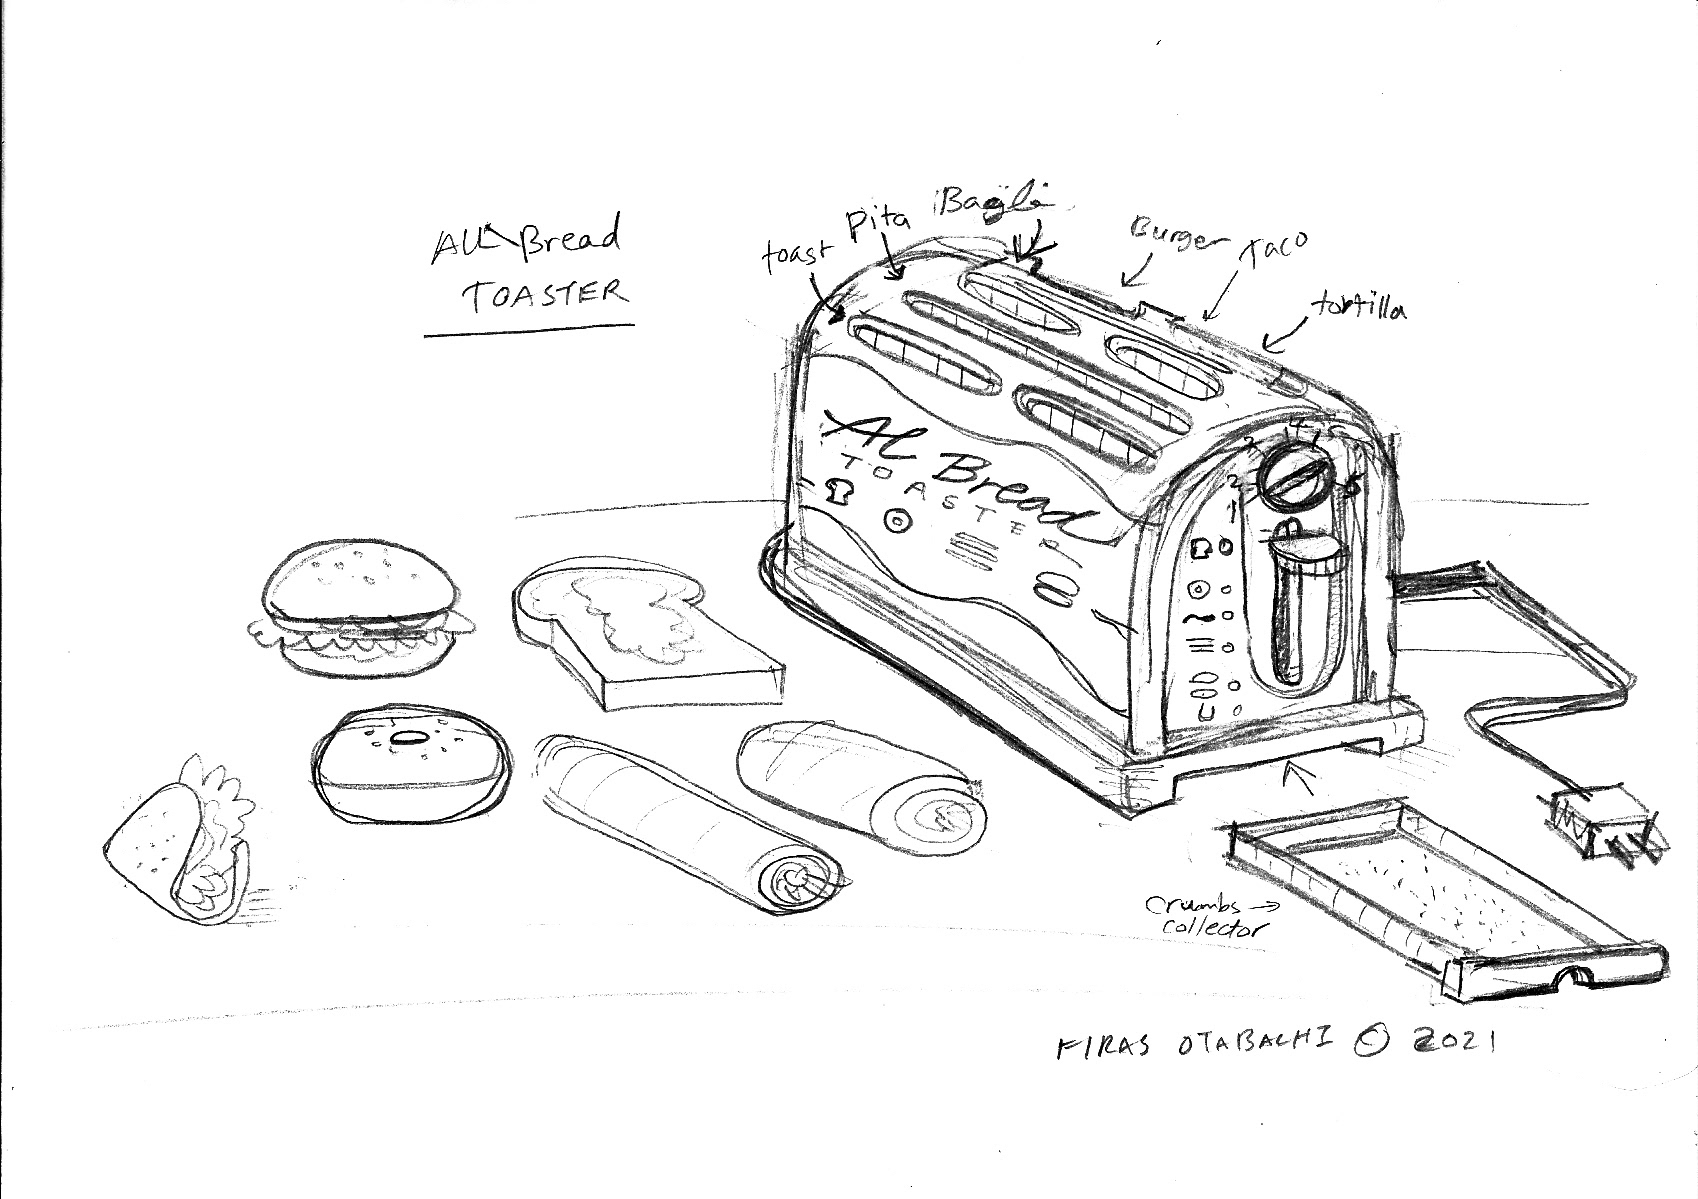 ALL Bread
TOASTER
toast
Pita
Burger
Taco
tortilla
AL Bread
TOASTER
1
2
3
4
6
Crumbs
collector
FIRAS OTABACHI © 2021